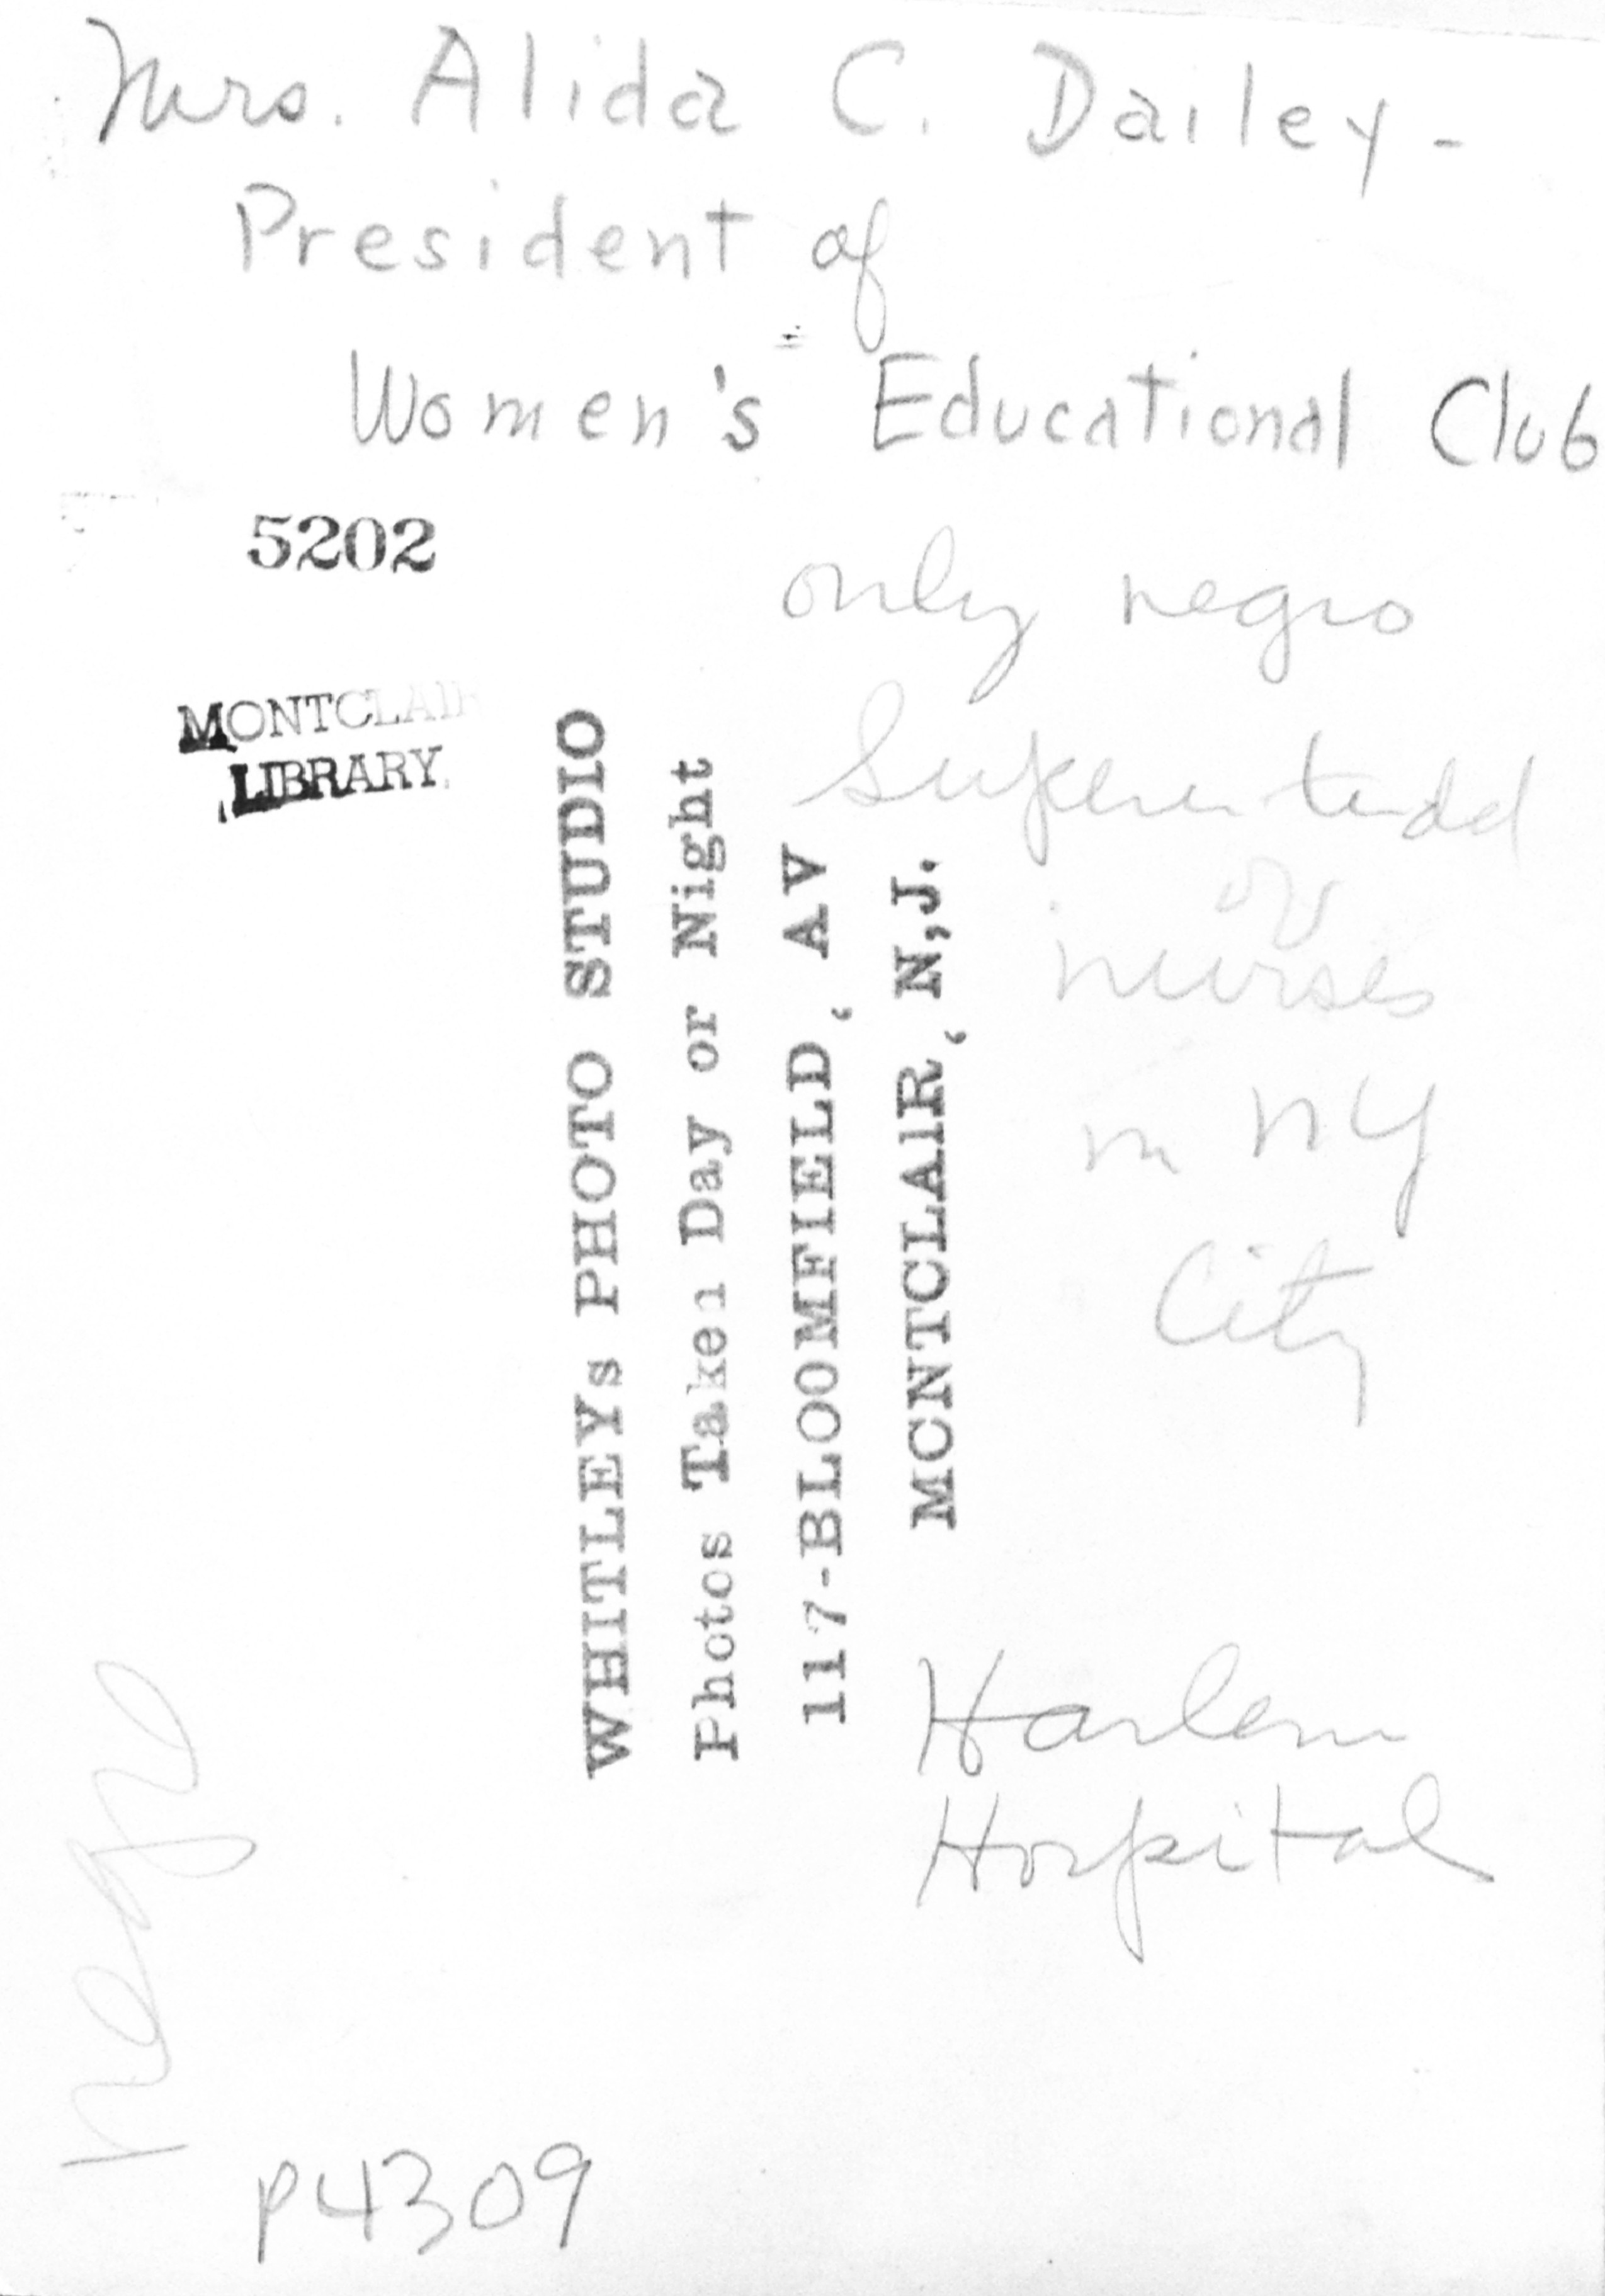 Mrs. Alida C. Dailey -
President of
Women's Educational Club
5202
only negro
MONTCLAIR
LIBRARY
of
nurses
in NY
City
WHITLEYs PHOTO STUDIO
Photos Taken Day or Night
117-BLOOMFIELD, AV
MONTCLAIR, N,J.
Harlem
Hospital
negro
P4309